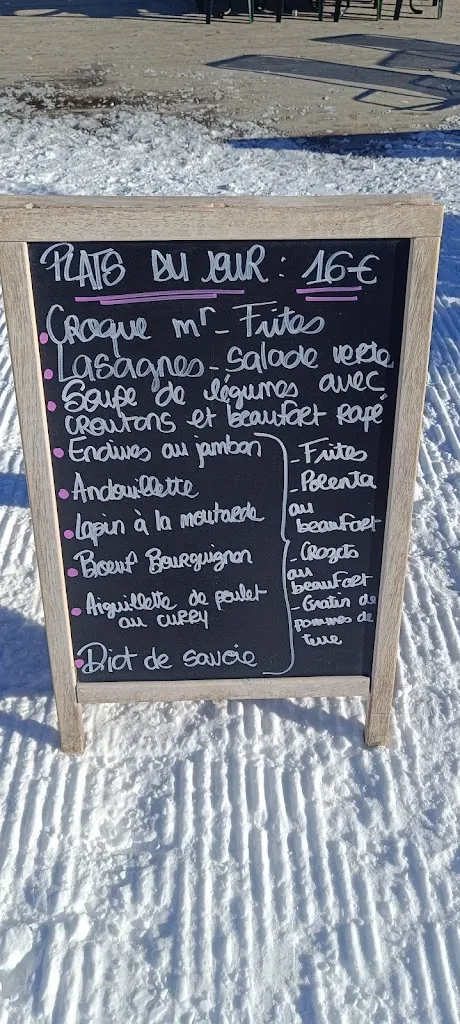 PLATS DU JOUR : 16€
Croque mr - Frites
Lasagnes - Salade verte
Soupe de légumes avec
croutons et beaufort rapé
Endives au jambon
Andouillette
Lapin à la moutarde
Boeuf Bourguignon
Aiguillette de poulet
au curry
Diot de savoie
- Frites
- Polenta
au
beaufort
- Crozets
au
beaufort
- Gratin de
pommes de
terre